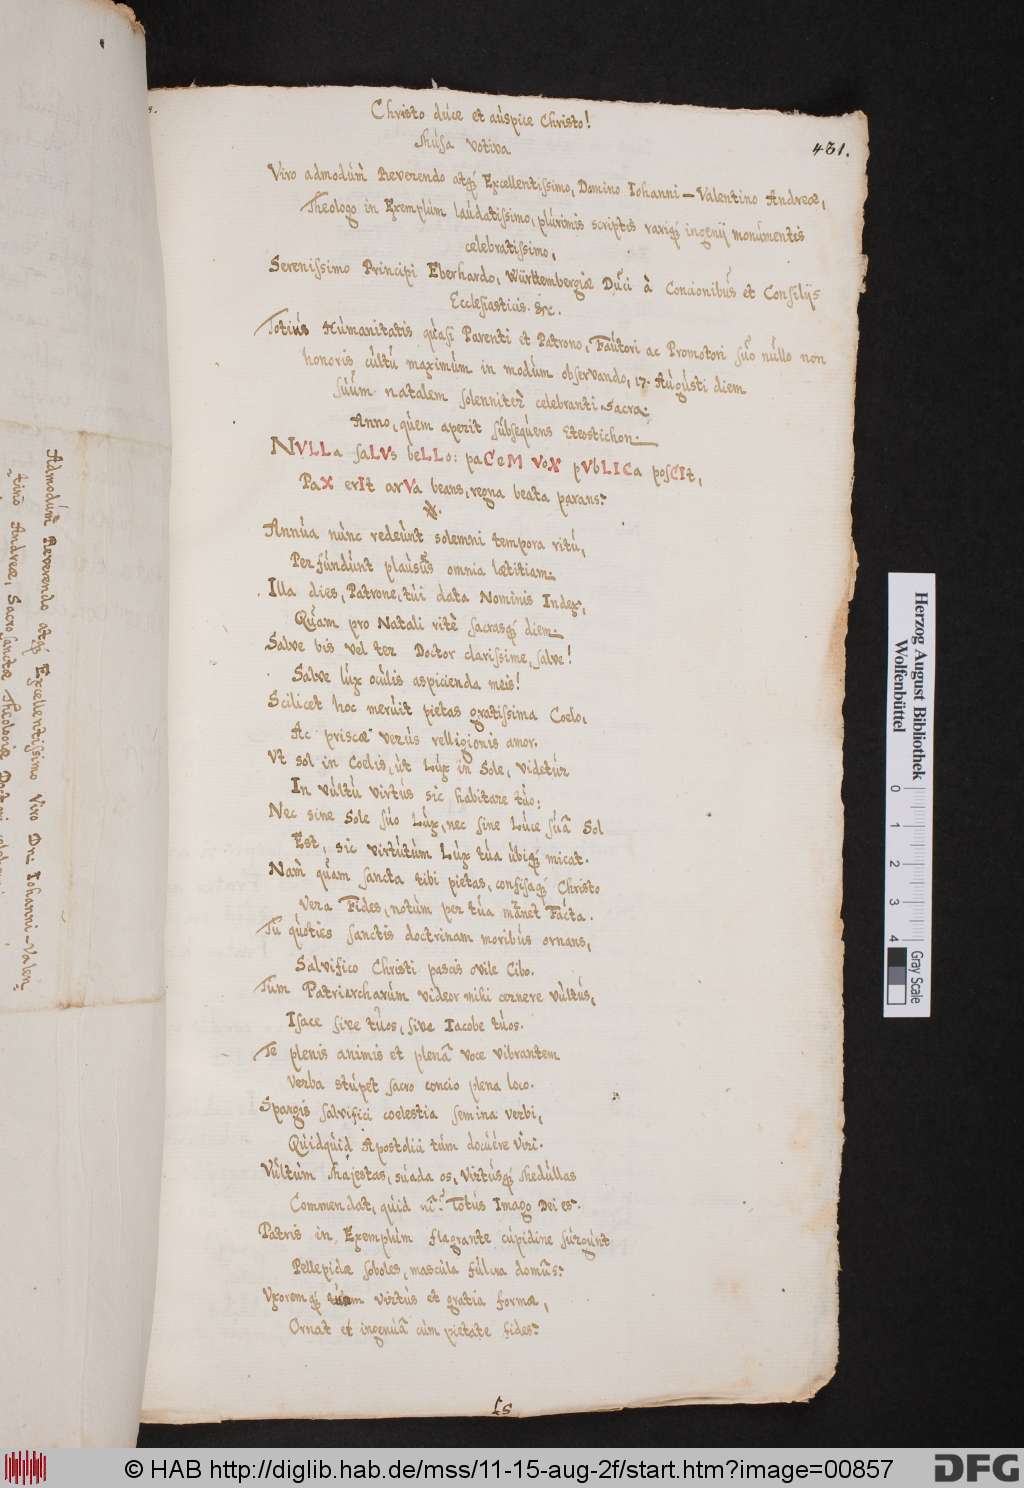 Christo duce et auspice Christo!
Musa votiva
431.
Viro admodum̃ Reverendo atq́ Excellentissimo, Domino Iohanni-Valentino Andreæ,
Theologo in Exemplum laudatissimo, plurimis scriptis rariq́ ingenij monumentis
celebratissimo,
Serenissimo Principi Eberhardo, Württembergiæ Duci à Concionibus et Consilijs
Ecclesiasticis. &c.
Totius Humanitatis quasi Parenti et Patrono, Fautori ac Promotori suo nullo non
honoris cultu maximum in modum observando, 17. Augusti diem
suum natalem solenniter celebranti sacra;
Anno, quem aperit subsequens Eteostichon.
NVLLa saLVs beLLo: paCeM VoX pVbLICa posCIt,
PaX erIt arVa beans, regna beata parans:
Annua nunc redeunt solemni tempora ritu,
Perfundunt plausus omnia lætitiam.
Illa dies, Patrone, tui data Nominis Index,
Quam pro Natali rite sacrasq́ diem.
Salve bis vel ter Doctor clarissime, salve!
Salve lux oculis aspicienda meis!
Scilicet hoc meruit pietas gratissima Coelo,
Ac priscæ verus relligionis amor.
Vt sol in Coelis, ut Lux in Sole, videtur
In vultu virtus sic habitare tuo:
Nec sine Sole suo Lux, nec sine Luce suâ Sol
Est, sic virtutum Lux tua ubiq́ micat.
Nam̃ quam sancta tibi pietas, confisaq́ Christo
Vera Fides, notum per tua manet Facta.
Tu quoties sanctis doctrinam moribus ornans,
Salvifico Christi pascis ovile Cibo.
Tum Patriarcharum videor mihi cernere vultus,
Isace sive tuos, sive Iacobe tuos.
Te plenis animis et plenâ voce vibrantem
Verba stupet sacro concio plena loco.
Spargis salvifici coelestia semina verbi,
Quidquid Apostolici tum docuere Viri.
Vultum Majestas, suada os, Virtusq́ Medullas
Commendat, quid Totus Imago Dei es.
Patris in Exemplum flagrante cupidine surgunt
Pellepidæ soboles, mascula fulcra domus:
Vxoremq́ virtus et gratia formæ,
Ornat et ingenuâ cum pietate fides:
Admodum̃ Reverendo atq́ Excellentissimo Viro Dn. Iohanni-Valen-
tino Andreæ, Sacrosanctæ Theologiæ Doctori
Herzog August Bibliothek
Wolfenbüttel
0 1 2 3 4
Gray Scale
© HAB http://diglib.hab.de/mss/11-15-aug-2f/start.htm?image=00857
DFG